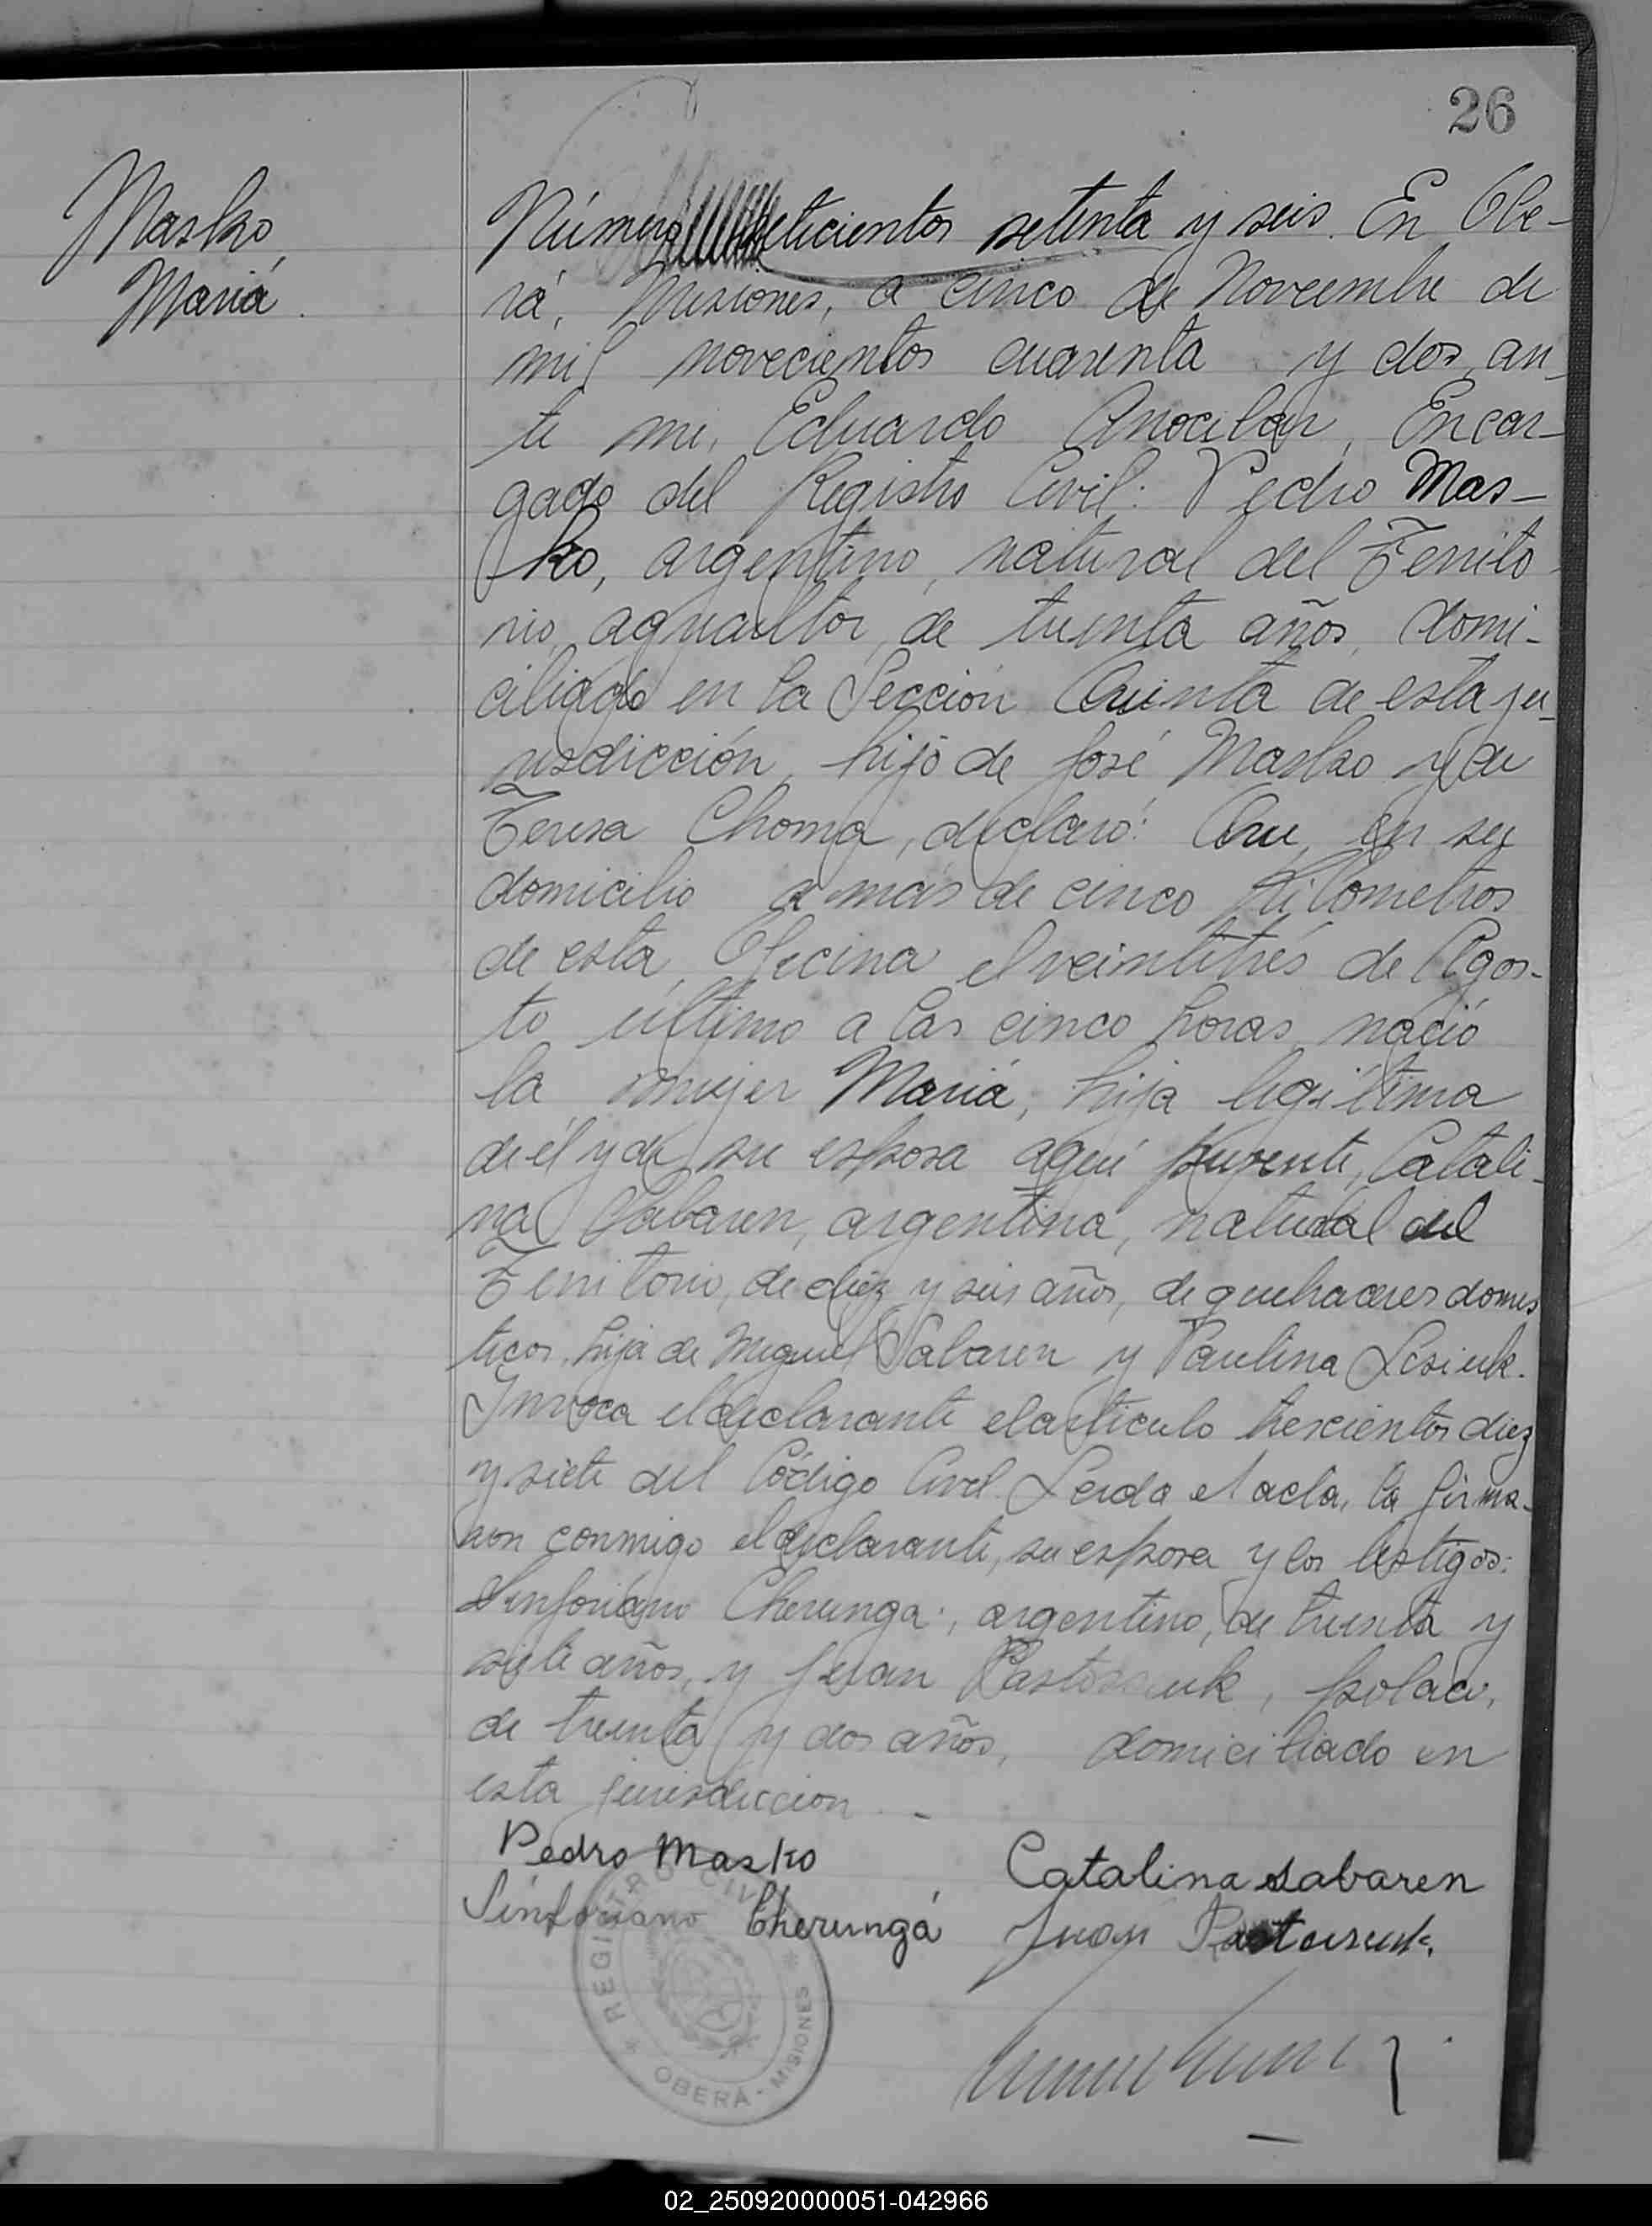 26
Masko,
María.
Número seteicientos setenta y seis. En Obe-
rá, Misiones, a cinco de Noviembre de
mil novecientos cuarenta y dos, an-
te mi, Eduardo Encar-
gado del Registro Civil: Pedro Mas-
ko, argentino, natural del Territo-
rio, agricultor, de treinta años, domi-
ciliado en la Sección Quinta de esta ju-
risdicción, hijo de José Masko y de
Teresa Choma, declaró: Que, en su
domicilio a más de cinco kilometros
de esta Oficina el veintitrés de Agos-
to último a las cinco horas nació
la mujer María, hija legítima
de él y de su esposa aquí presente, Catali-
na Sabaren, argentina, natural del
Territorio, de diez y seis años, de quehaceres domes
ticos, hija de Miguel Sabaren y Paulina Lesiuk.
Invoca el declarante el artículo trescientos diez
y siete del Código Civil. Leida el acta, la firma-
ron conmigo el declarante, su esposa y los testigos:
Sinforiano Cherunga, argentino, de treinta y
siete años, y Juan polaco,
de treinta y dos años, domiciliado en
esta jurisdicción. -
Pedro Masko Catalina Sabaren
Sinforiano Cherungá Juan
REGISTRO CIVIL
OBERÁ - MISIONES
02_250920000051-042966